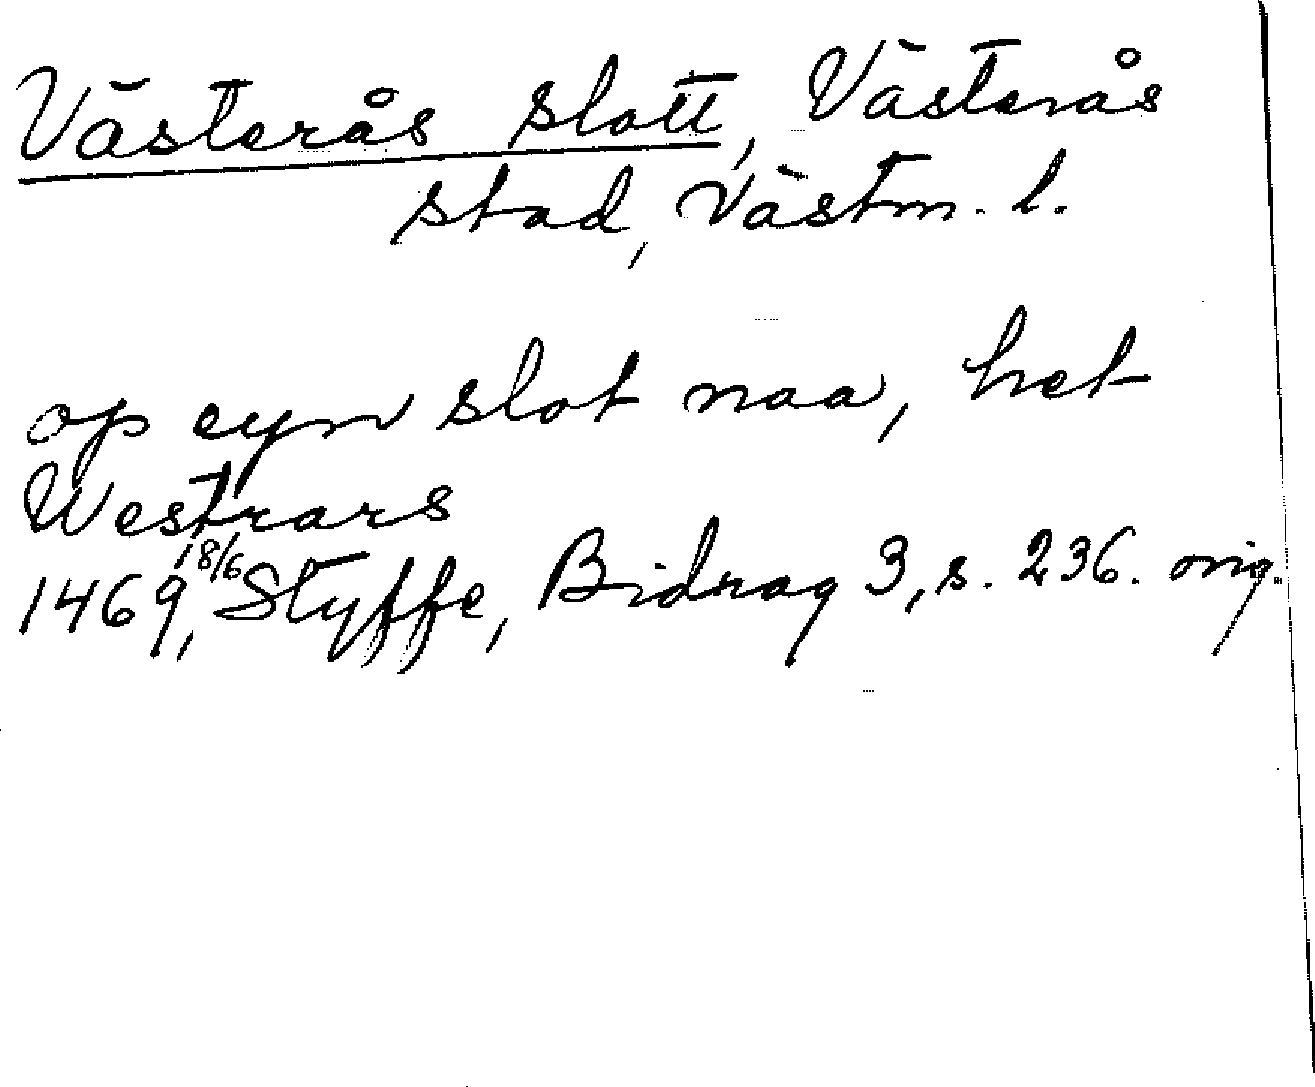 Västerås slott, Västerås
stad, Västm. l.
op eyn slot naa, het
Westrars
1469, 18/6 Styffe, Bidrag 3, s. 236. orig.